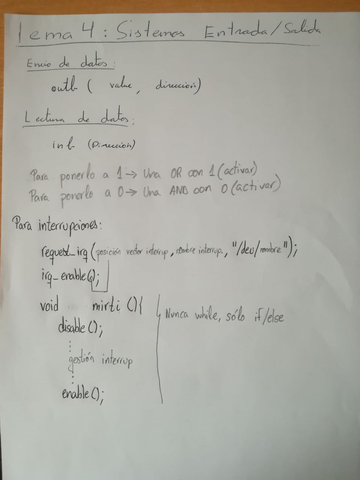 Tema 4: Sistemas Entrada/Salida
Envio de datos:
outb ( value, direccion)
Lectura de datos:
inb (Direccion)
Para ponerlo a 1 → Una OR con 1 (activar)
Para ponerlo a 0 → Una AND con 0 (activar)
Para interrupciones:
request_irq (posición vector interrup, nombre interrup, "/dev/nombre");
irq_enable();
void mirti (){
Nunca while, sólo if/else
disable();
gestión interrup
enable();